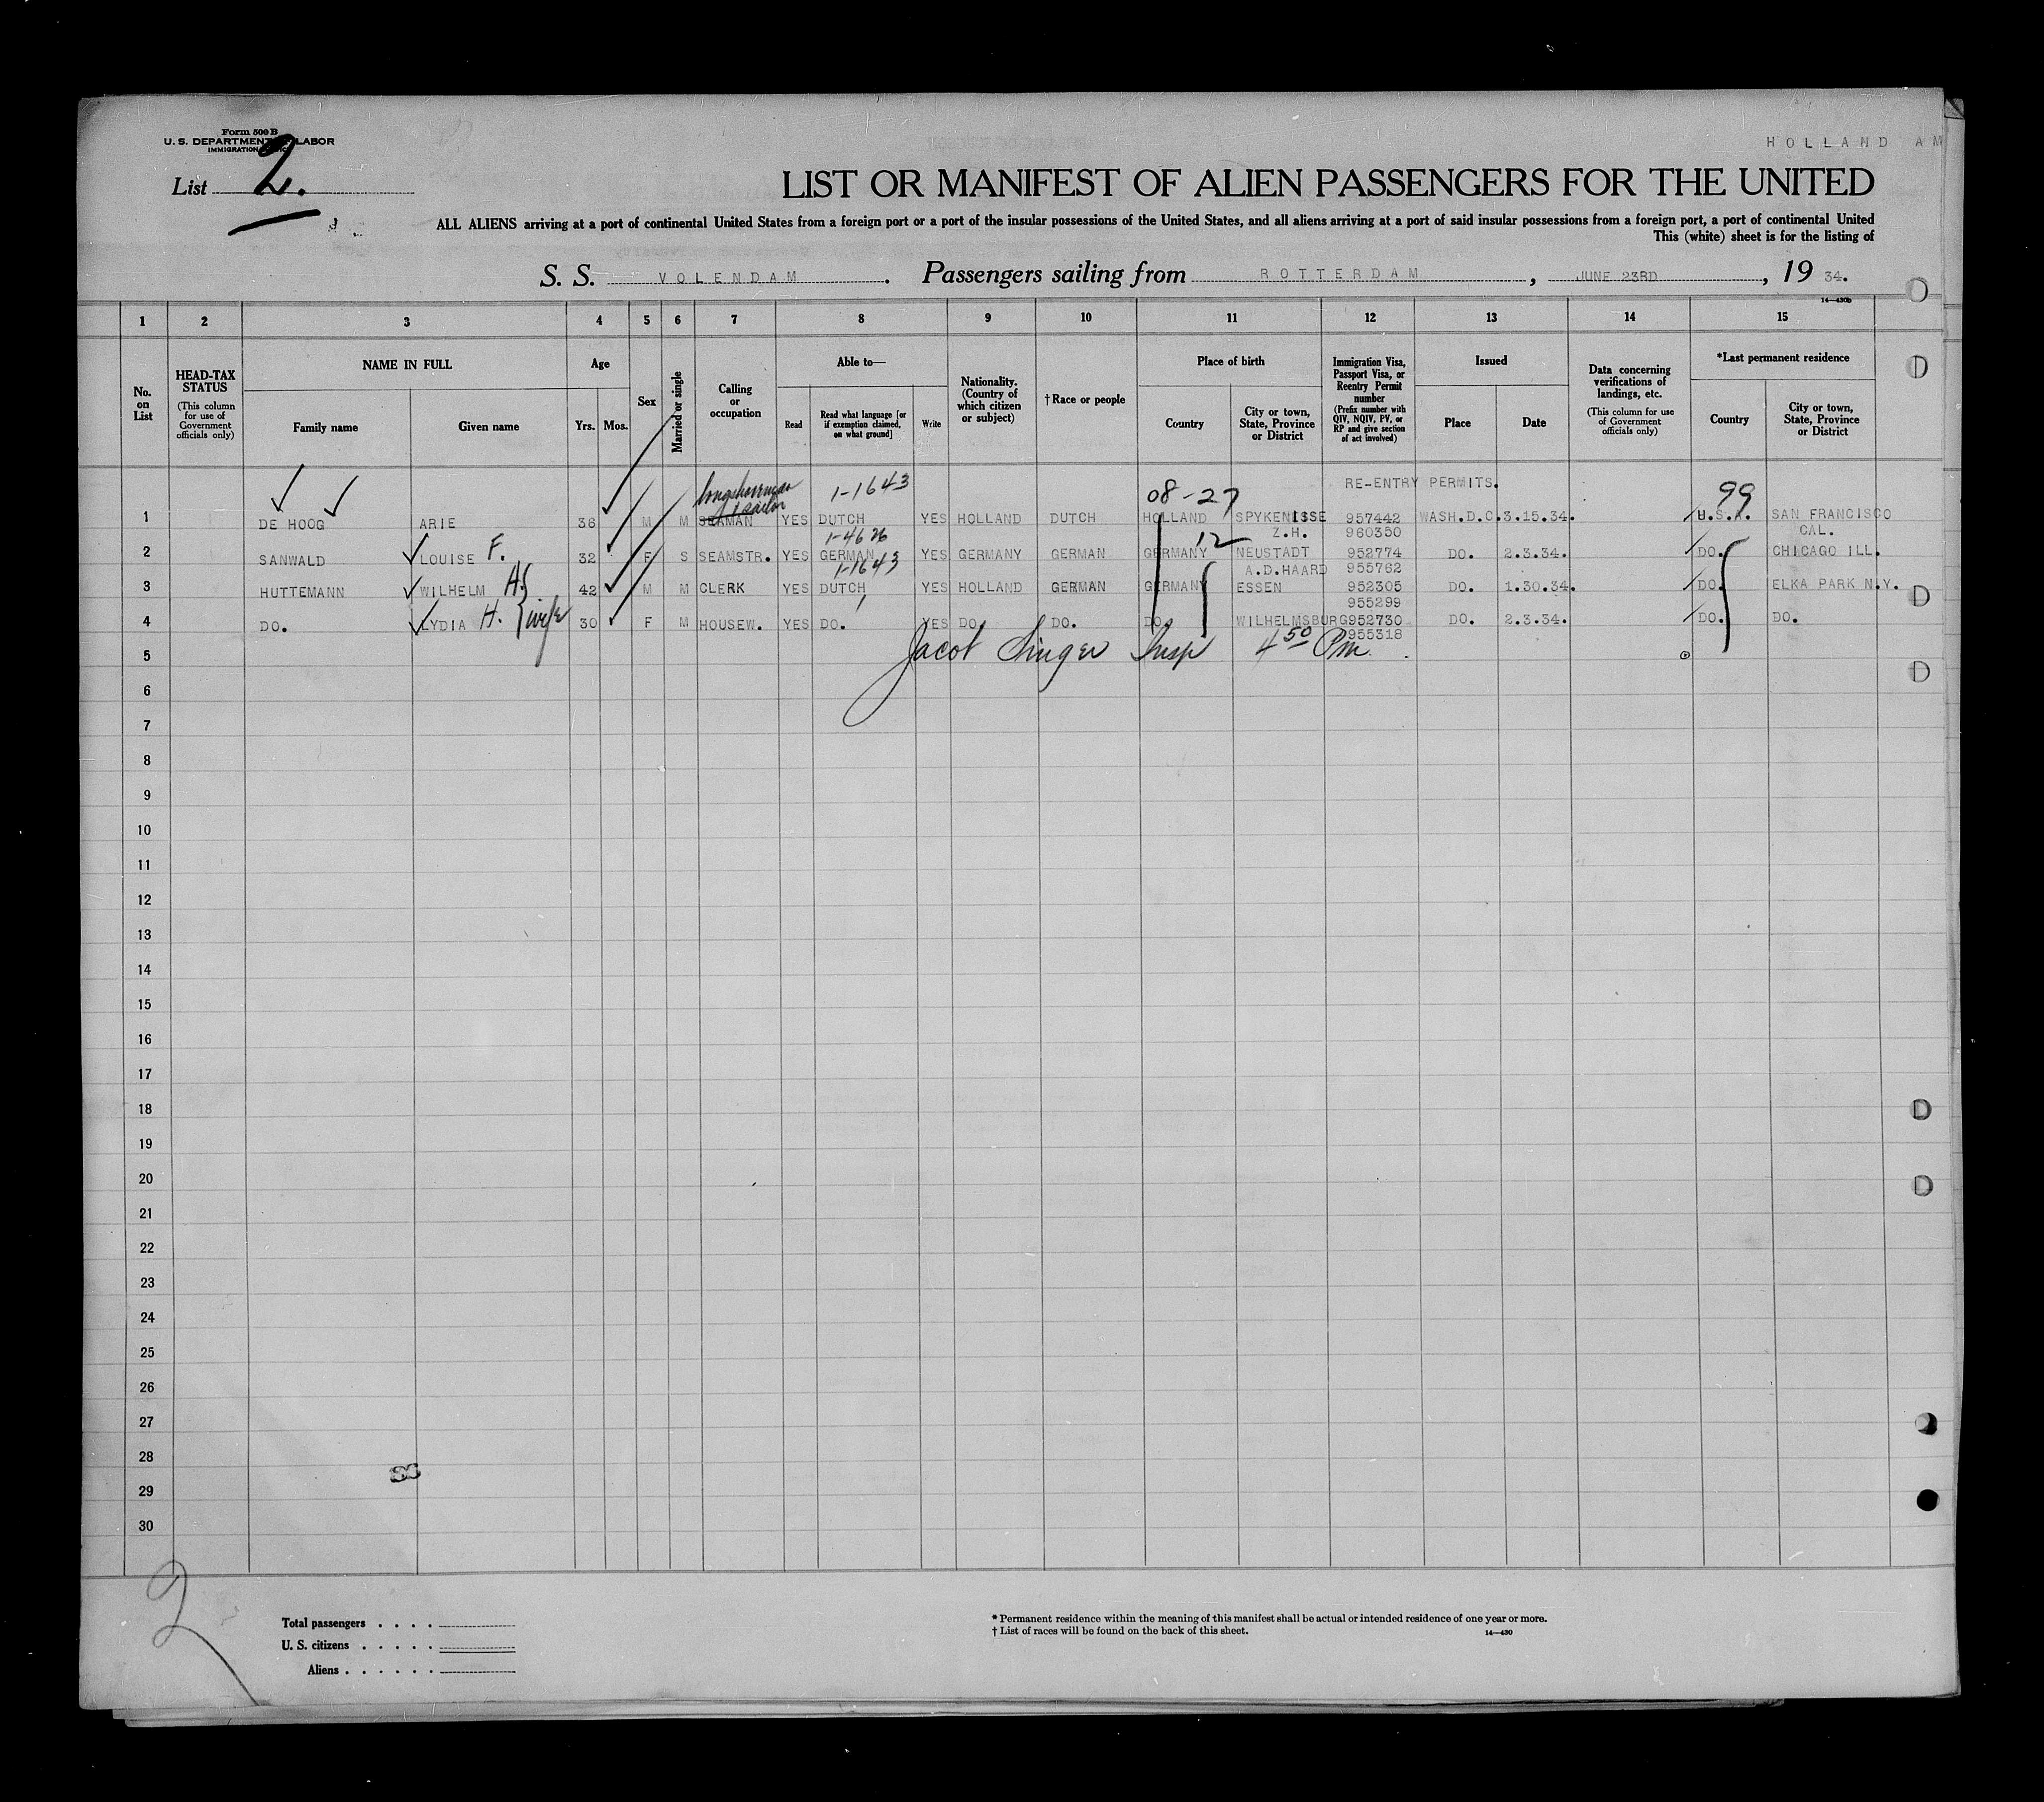 Form 500 B
U. S. DEPARTMENT LABOR
IMMIGRATION
HOLLAND AM
List 2.
LIST OR MANIFEST OF ALIEN PASSENGERS FOR THE UNITED
ALL ALIENS arriving at a port of continental United States from a foreign port or a port of the insular possessions of the United States, and all aliens arriving at a port of said insular possessions from a foreign port, a port of continental United
This (white) sheet is for the listing of
S. S. VOLENDAM. Passengers sailing from ROTTERDAM, JUNE 23RD, 19 34.
14—430b
1 2 3 4 5 6 7 8 9 10 11 12 13 14 15
No. on List
HEAD-TAX STATUS (This column for use of Government officials only)
NAME IN FULL
Family name Given name
Age
Yrs. Mos.
Sex
Married or single
Calling or occupation
Able to—
Read Read what language [or if exemption claimed, on what ground] Write
Nationality. (Country of which citizen or subject)
† Race or people
Place of birth
Country City or town, State, Province or District
Immigration Visa, Passport Visa, or Reentry Permit number (Prefix number with QIV, NQIV, PV, or RP and give section of act involved)
Issued
Place Date
Data concerning verifications of landings, etc. (This column for use of Government officials only)
*Last permanent residence
Country City or town, State, Province or District
longshoreman 1-1643 08-27 RE-ENTRY PERMITS. 99
sailor
1 DE HOOG ARIE 38 M M SEAMAN YES DUTCH YES HOLLAND DUTCH HOLLAND SPYKENISSE 957442 WASH.D.C. 3.15.34. U.S.A. SAN FRANCISCO
1-4626 12 Z.H. 960350 CAL.
2 SANWALD LOUISE F. 32 F S SEAMSTR. YES GERMAN YES GERMANY GERMAN GERMANY NEUSTADT 952774 DO. 2.3.34. DO. CHICAGO ILL.
1-1643 A.D.HAARD 955762
3 HUTTEMANN WILHELM H. 42 M M CLERK YES DUTCH YES HOLLAND GERMAN GERMANY ESSEN 952305 DO. 1.30.34. DO. ELKA PARK N.Y.
955299
4 DO. LYDIA H. wife 30 F M HOUSEW. YES DO. YES DO. DO. DO. WILHELMSBURG 952730 DO. 2.3.34. DO. DO.
955318
5 Jacob Singer Insp 4 50 Pm.
6
7
8
9
10
11
12
13
14
15
16
17
18
19
20
21
22
23
24
25
26
27
28
29
30
2
Total passengers . . . .
U. S. citizens . . . . .
Aliens . . . . . .
* Permanent residence within the meaning of this manifest shall be actual or intended residence of one year or more.
† List of races will be found on the back of this sheet.
14—430